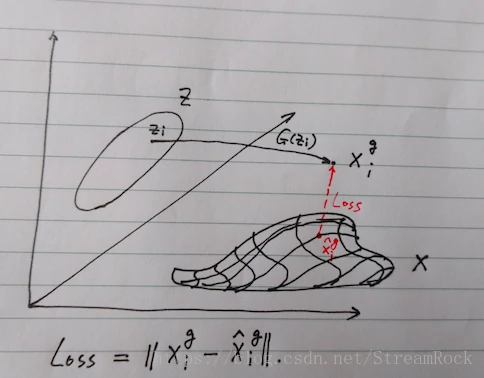 Z
zi
G(zi)
X_i^g
Loss
\hat{X}_i^g
X
Loss = ‖ X_i^g - \hat{X}_i^g ‖.
https://blog.csdn.net/StreamRock